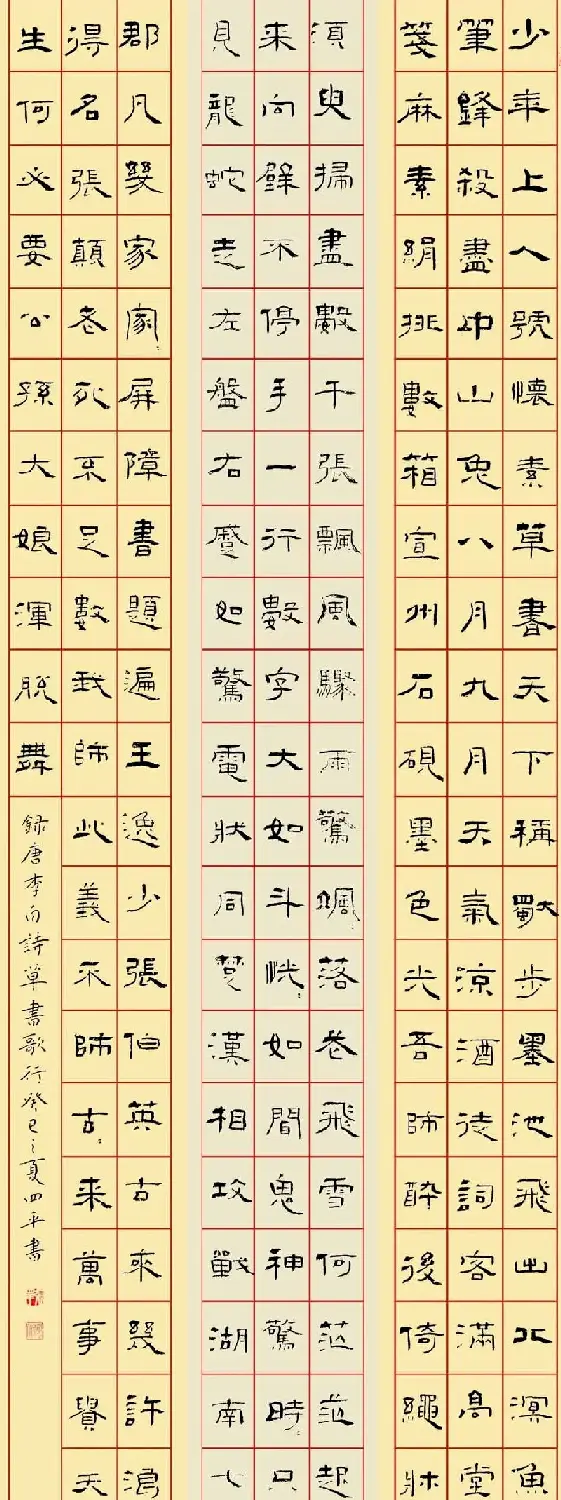 少年上人號懷素草書天下稱獨步墨池飛出北溟魚
筆鋒殺盡中山兔八月九月天氣涼酒徒詞客滿高堂
箋麻素絹排數箱宣州石硯墨色光吾師醉後倚繩牀
須臾掃盡數千張飄風驟雨驚颯々落花飛雪何茫茫起
来向壁不停手一行數字大如斗怳々如聞鬼神驚時々只
見龍蛇走左盤右蹙如驚電狀同楚漢相攻戰湖南七
郡凡幾家家々屏障書題遍王逸少張伯英古來幾許浪
得名張顛老死不足數我師此義不師古々来萬事貴天
生何必要公孫大娘渾脫舞
録唐李白詩草書歌行癸巳之夏四平書